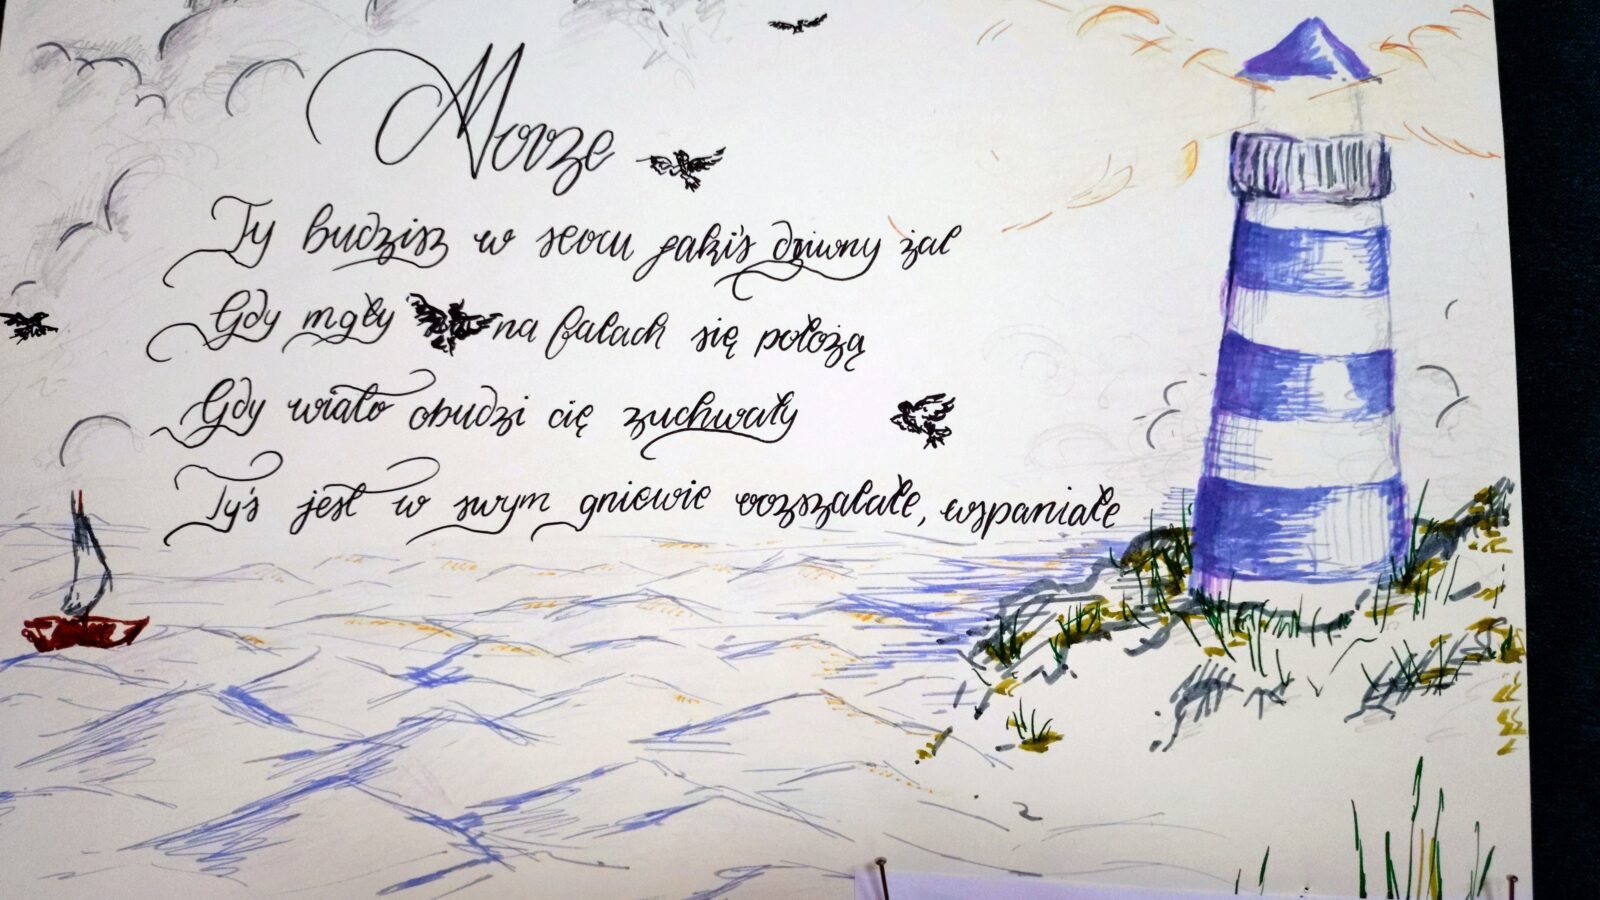 Morze
Ty budzisz w sercu jakiś dziwny żal
Gdy mgły na falach się położą
Gdy wiatr obudzi cię zuchwały
Tyś jest w swym gniewie rozszalałe, wspaniałe